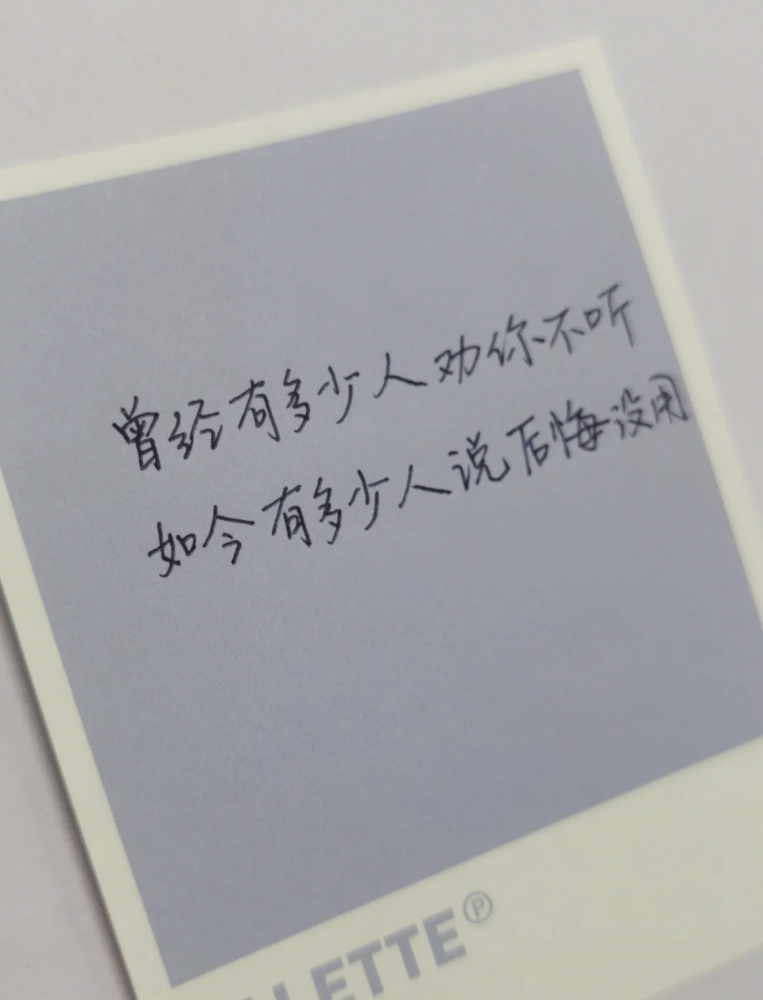 曾经有多少人劝你不听
如今有多少人说后悔没用
LETTE®